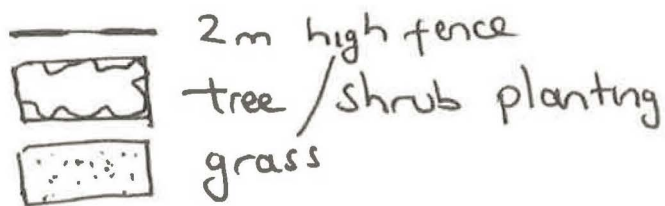 2m high fence
tree / shrub planting
grass